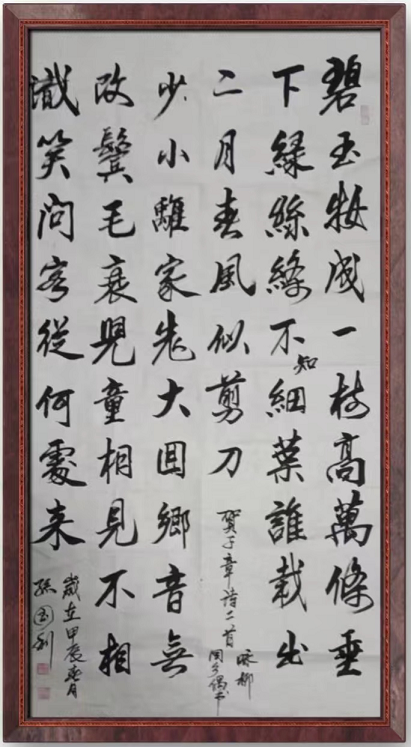 碧玉妝成一樹高萬條垂
下綠絲絛不知細葉誰裁出
二月春風似剪刀
賀子章詩二首
咏柳
回乡偶书
少小離家老大回鄉音無
改鬢毛衰兒童相見不相
識笑問客從何處来
歲在甲辰春月
孫国利